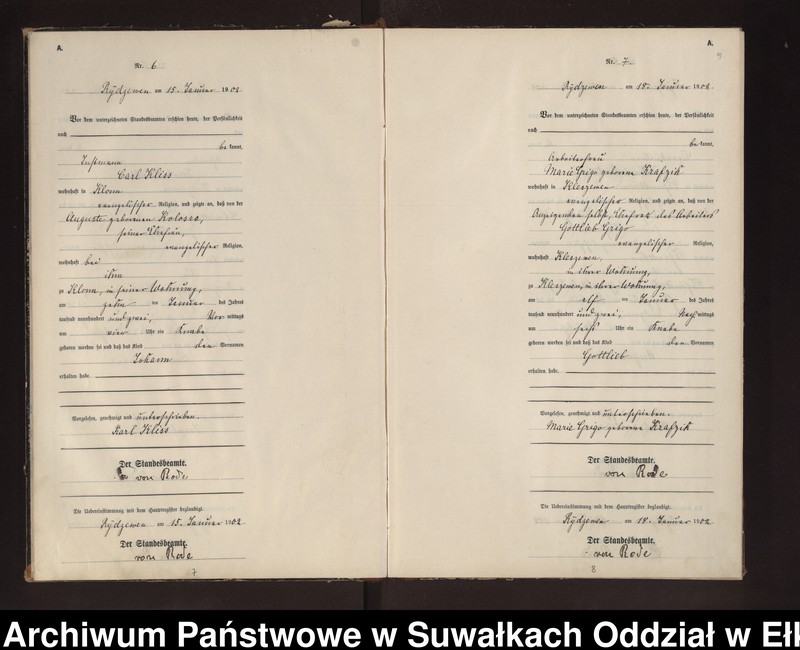 A.
Nr. 6
Rydzewen am 15. Januar 1902
Vor dem unterzeichneten Standesbeamten erschien heute, der Persönlichkeit
nach
bekannt,
Instmann
Carl Kliss
wohnhaft in Klonn
evangelischer Religion, und zeigte an, daß von der
Auguste geborenen Kolossa,
seiner Ehefrau,
evangelischer Religion,
wohnhaft bei
ihm
zu Klonn, in seiner Wohnung,
am zehn ten Januar des Jahres
tausend neunhundert und zwei, Vor mittags
um vier Uhr ein Knabe
geboren worden sei und daß das Kind den Vornamen
Johann
erhalten habe.
Vorgelesen, genehmigt und unterschrieben.
Karl Kliss
Der Standesbeamte.
von Rode
Die Uebereinstimmung mit dem Hauptregister beglaubigt.
Rydzewen am 15. Januar 1902
Der Standesbeamte.
von Rode
7
A.
9
Nr. 7.
Rydzewen am 18. Januar 1902
Vor dem unterzeichneten Standesbeamten erschien heute, der Persönlichkeit
nach
bekannt,
Arbeiterfrau
Marie Grigo geborene Krafzik
wohnhaft in Kleszewen
evangelischer Religion, und zeigte an, daß von der
Anzeigenden selbst, Ehefrau des Arbeiters
Gottlieb Grigo
evangelischer Religion,
wohnhaft Kleszewen,
in ihrer Wohnung,
zu Kleszewen, in ihrer Wohnung,
am elf ten Januar des Jahres
tausend neunhundert und zwei, Nach mittags
um sechs Uhr ein Knabe
geboren worden sei und daß das Kind den Vornamen
Gottlieb
erhalten habe.
Vorgelesen, genehmigt und unterschrieben.
Marie Grigo geborene Krafzik
Der Standesbeamte.
von Rode
Die Uebereinstimmung mit dem Hauptregister beglaubigt.
Rydzewen am 18. Januar 1902
Der Standesbeamte.
von Rode
8
Archiwum Państwowe w Suwałkach Oddział w Ełk